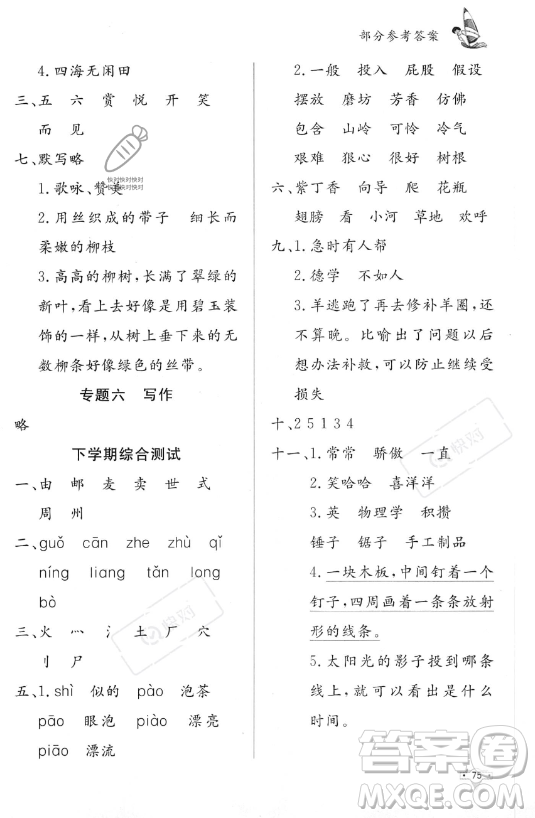 部分参考答案
4.四海无闲田
三、五 六 赏 悦 开 笑
而 见
七、默写略
1.歌咏、赞美
2.用丝织成的带子 细长而
柔嫩的柳枝
3.高高的柳树,长满了翠绿的
新叶,看上去好像是用碧玉装
饰的一样,从树上垂下来的无
数柳条好像绿色的丝带。
专题六 写作
略
下学期综合测试
一、由 邮 麦 卖 世 式
周 州
二、guǒ cān zhe zhù qǐ
níng liang tǎn long
bò
三、火 宀 氵 土 厂 穴
刂 尸
五、1.shì 似的 pào 泡茶
pāo 眼泡 piào 漂亮
piāo 漂流
2.一般 投入 屁股 假设
摆放 磨坊 芳香 仿佛
包含 山岭 可怜 冷气
艰难 狠心 很好 树根
六、紫丁香 向导 爬 花瓶
翅膀 看 小河 草地 欢呼
九、1.急时有人帮
2.德学 不如人
3.羊逃跑了再去修补羊圈,还
不算晚。比喻出了问题以后
想办法补救,可以防止继续受
损失
十、2 5 1 3 4
十一、1.常常 骄傲 一直
2.笑哈哈 喜洋洋
3.英 物理学 积攒
锤子 锯子 手工制品
4.一块木板,中间钉着一个
钉子,四周画着一条条放射
形的线条。
5.太阳光的影子投到哪条
线上,就可以看出是什么
时间。
快对快对快对
快对
快对
答案圈
MXQE.COM
75